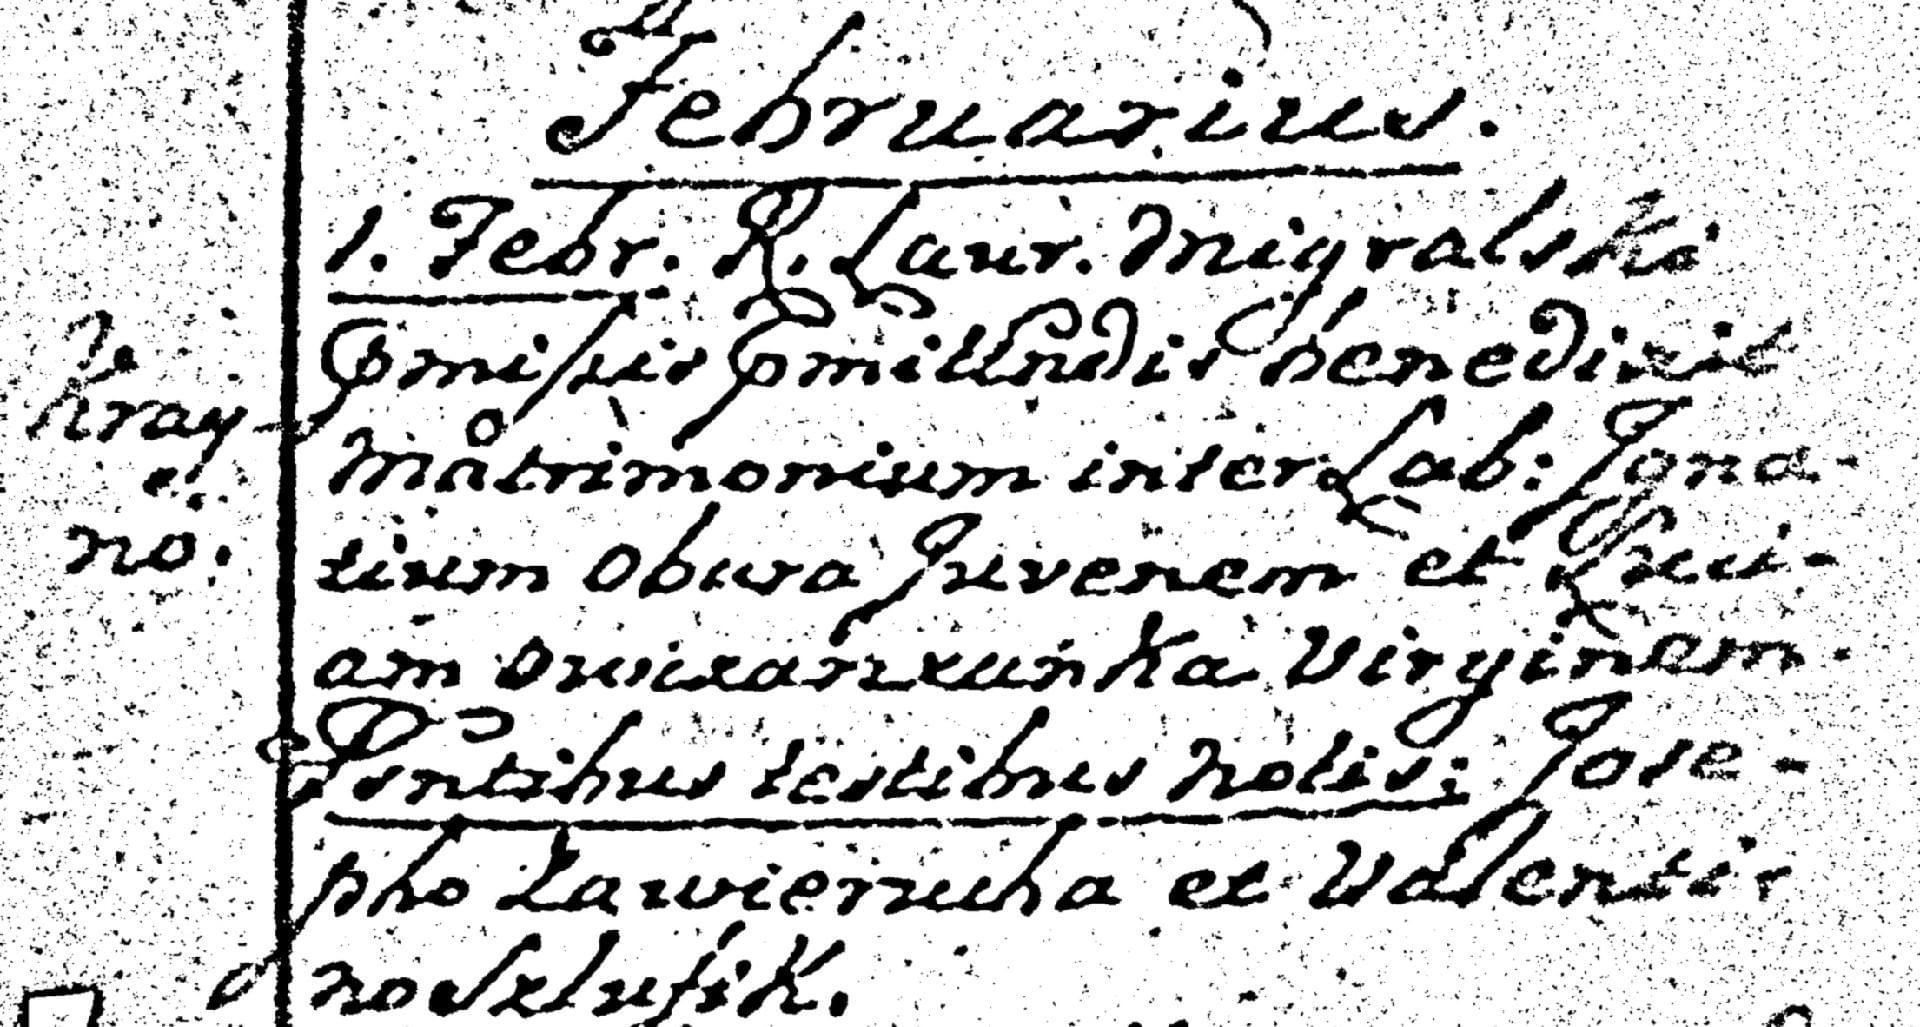 Februarius.
1. Febr. R. Laur. Migralski
pmissis pmittndis benedixit
Matrimonium inter Lab: Igna-
tium Obura Juvenem et Luci-
am Owczarzunka Virginem.
Psntibus testibus notis: Jose-
pho Zawierucha et Valenti-
no Szlusik.
Kray-
no.